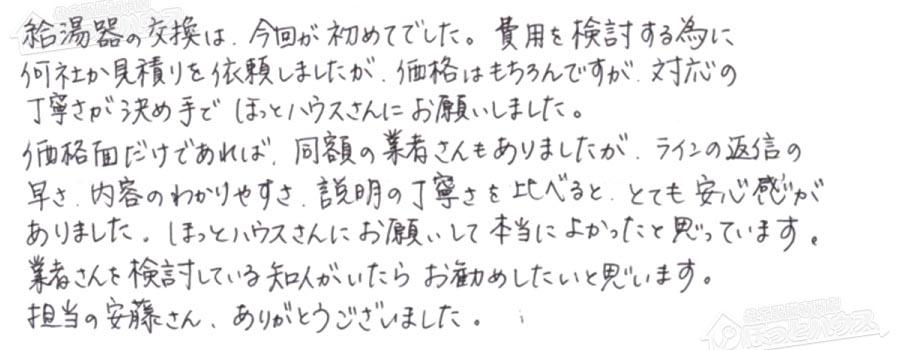 給湯器の交換は、今回が初めてでした。費用を検討する為に
何社か見積りを依頼しましたが、価格はもちろんですが、対応の
丁寧さが決め手で ほっとハウスさんにお願いしました。
価格面だけであれば、同額の業者さんもありましたが、ラインの返信の
早さ、内容のわかりやすさ、説明の丁寧さを比べると、とても安心感が
ありました。ほっとハウスさんにお願いして本当によかったと思っています。
業者さんを検討している知人がいたら お勧めしたいと思います。
担当の安藤さん、ありがとうございました。
ほっとハウス